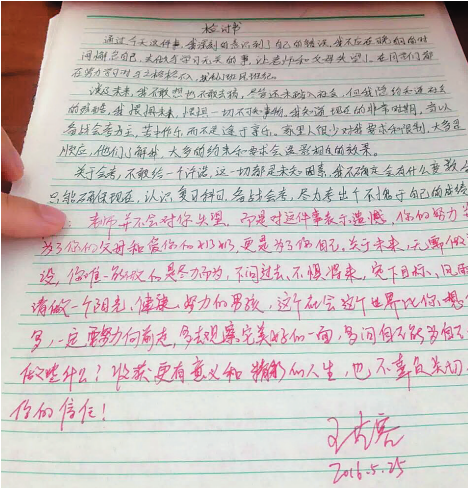 检讨书
通过今天这件事，我深刻的意识到了自己的错误，我不应在晚自习的时
间 自己，去做与学习无关的事，让老师和父母失望！在同学们都
在努力
谈及未来，我不敢想也不敢去猜，
的 ，我惧怕未来，惧怕一切不 ，我知道现在的非常时期，当以
备战会考为主，苦中作乐而不是逐于享乐。家里人很少对我要求和限制，大多是
顺应，他们了解我，太多的约束和要求会造成相反的效果。
关于会考，不敢给一个许诺，这一切都是未知因素，我不确定会有什么变数，
只能确保现在，认识复习科目，备战会考，尽力考出个不愧于自己的成绩
老师并不会对你失望，而是对这件事表示遗憾，你的努力
为了你的父母和爱你的奶奶，更是为了你自己。关于未来，无需做
设，你唯一能做的是尽力而为，不问过去，不惧将来，定下目标，
请做一个阳光、健康、努力的男孩，这个社会这个世界比你想
多，一定要努力向前走，多去观察完美好的一面，多问自己能为自己
做些什么？收获更有意义和精彩的人生，也不辜负关切
你的信任！
2016.5.25